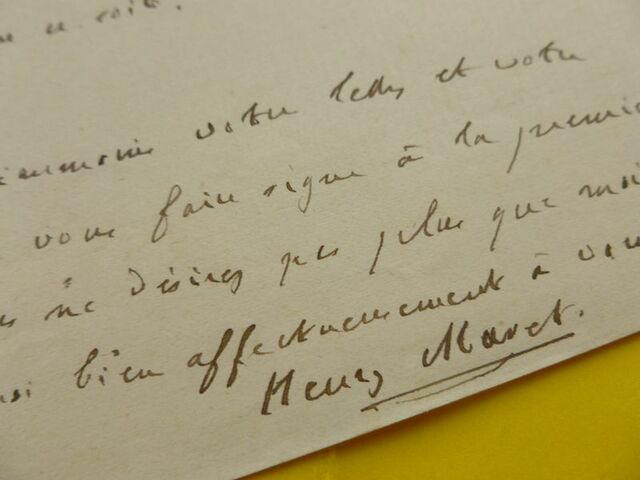 ce soir.
votre lettre et votre
vous faire signe à la premiè
ne désirez pas plus que moi
si bien affectueusement à vous
Henry Maret.